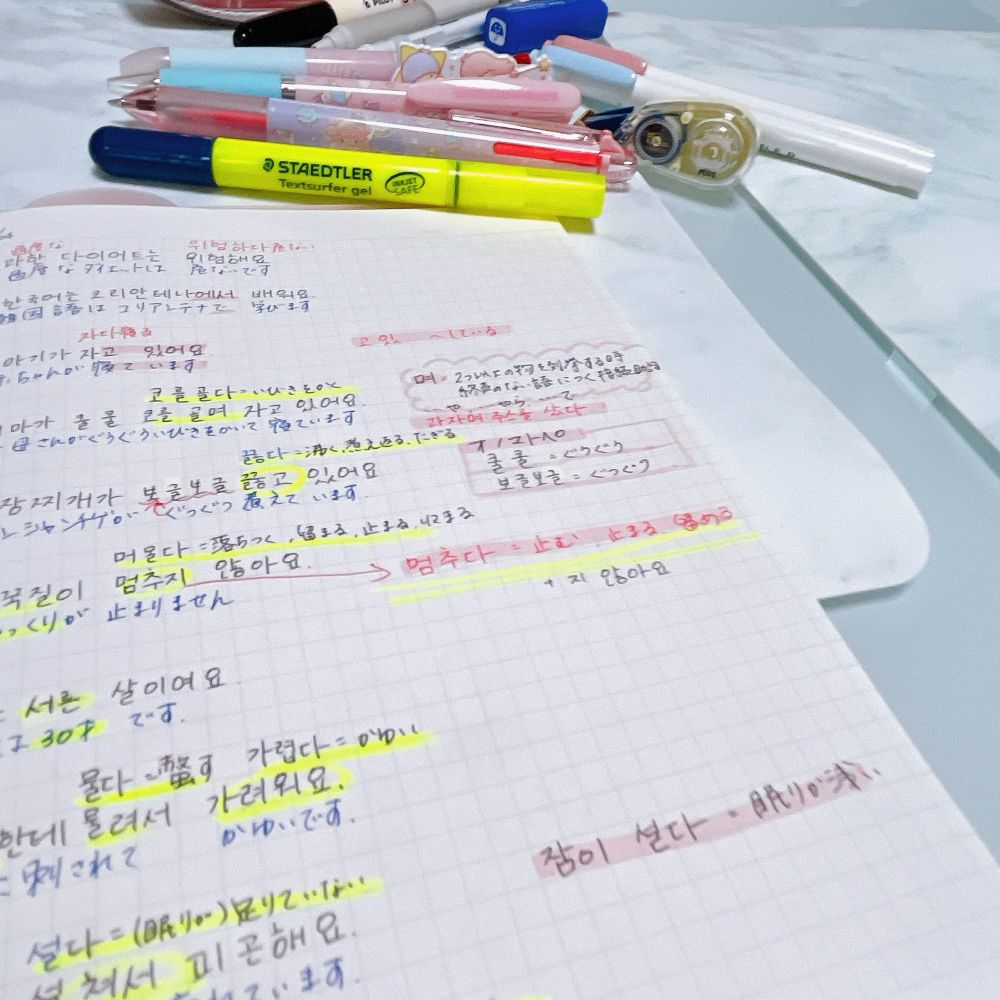 PILOT
STAEDTLER
Textsurfer gel
INKJET SAFE
PLUS
위험하다
과한 다이어트는 위험해요
過度なダイエットは 危ないです
한국어는 코리안테나에서 배워요.
韓国語はコリアンテナで 学びます
자다 寝る
고 있 〜している
아기가 자고 있어요
ちゃんが 寝て います
코를 골다 = いびきをかく
며. 2つ以上の物を列挙する時
終声のない語につく接続助詞
…や …やら …で
마가 쿨쿨 코를 골며 자고 있어요.
母さんがぐうぐういびきをかいて 寝ています
과자며 주스를 샀다.
끓다 = 沸く, 煮え返る, たぎる
オノマトペ
쿨쿨 = ぐうぐう
보글보글 = ぐつぐつ
장찌개가 보글보글 끓고 있어요
ンジャンチゲが ぐつぐつ 煮えて います.
머물다 = 落ちつく, 留まる, 止まる,
꾹질이 멈추지 않아요.
멈추다 = 止む 止まる 留める
+ 지 않아요
っくりが 止まりません
서른 살이에요
は 30才 です.
물다 = 螫す 가렵다 = かゆい
한테 물려서 가려워요.
に 刺されて かゆいです.
잠이 설다 = 眠りが浅い
설다 = (眠りが) 足りていない
설쳐서 피곤해요.
れています.